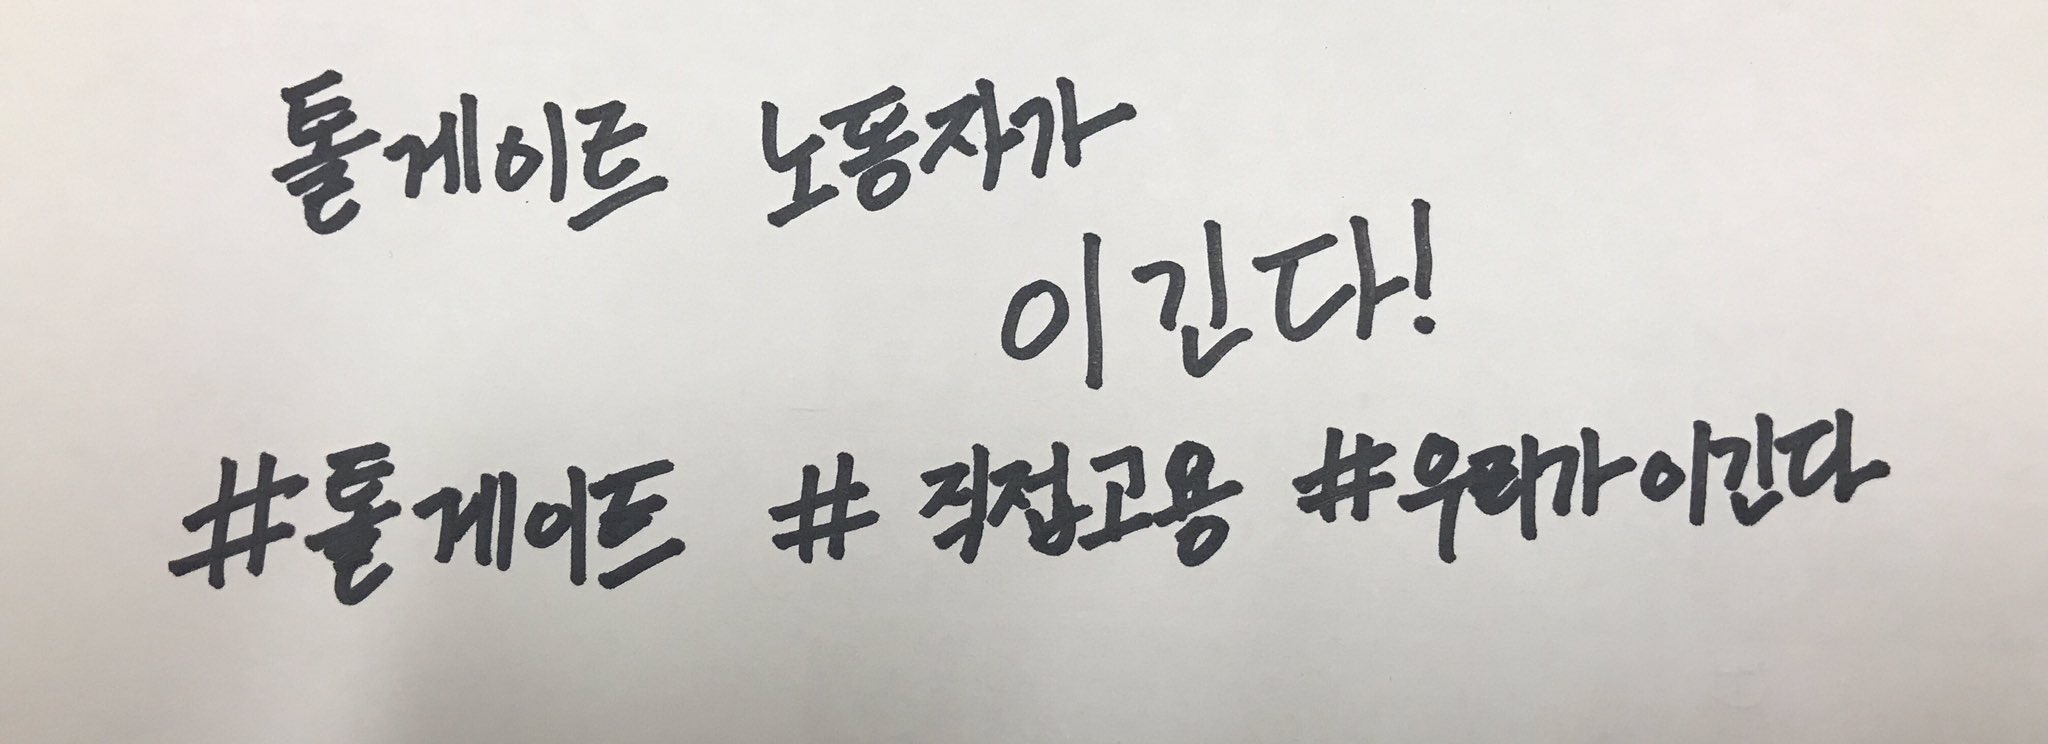 톨게이트 노동자가
이긴다!
#톨게이트 # 직접고용 #우리가이긴다